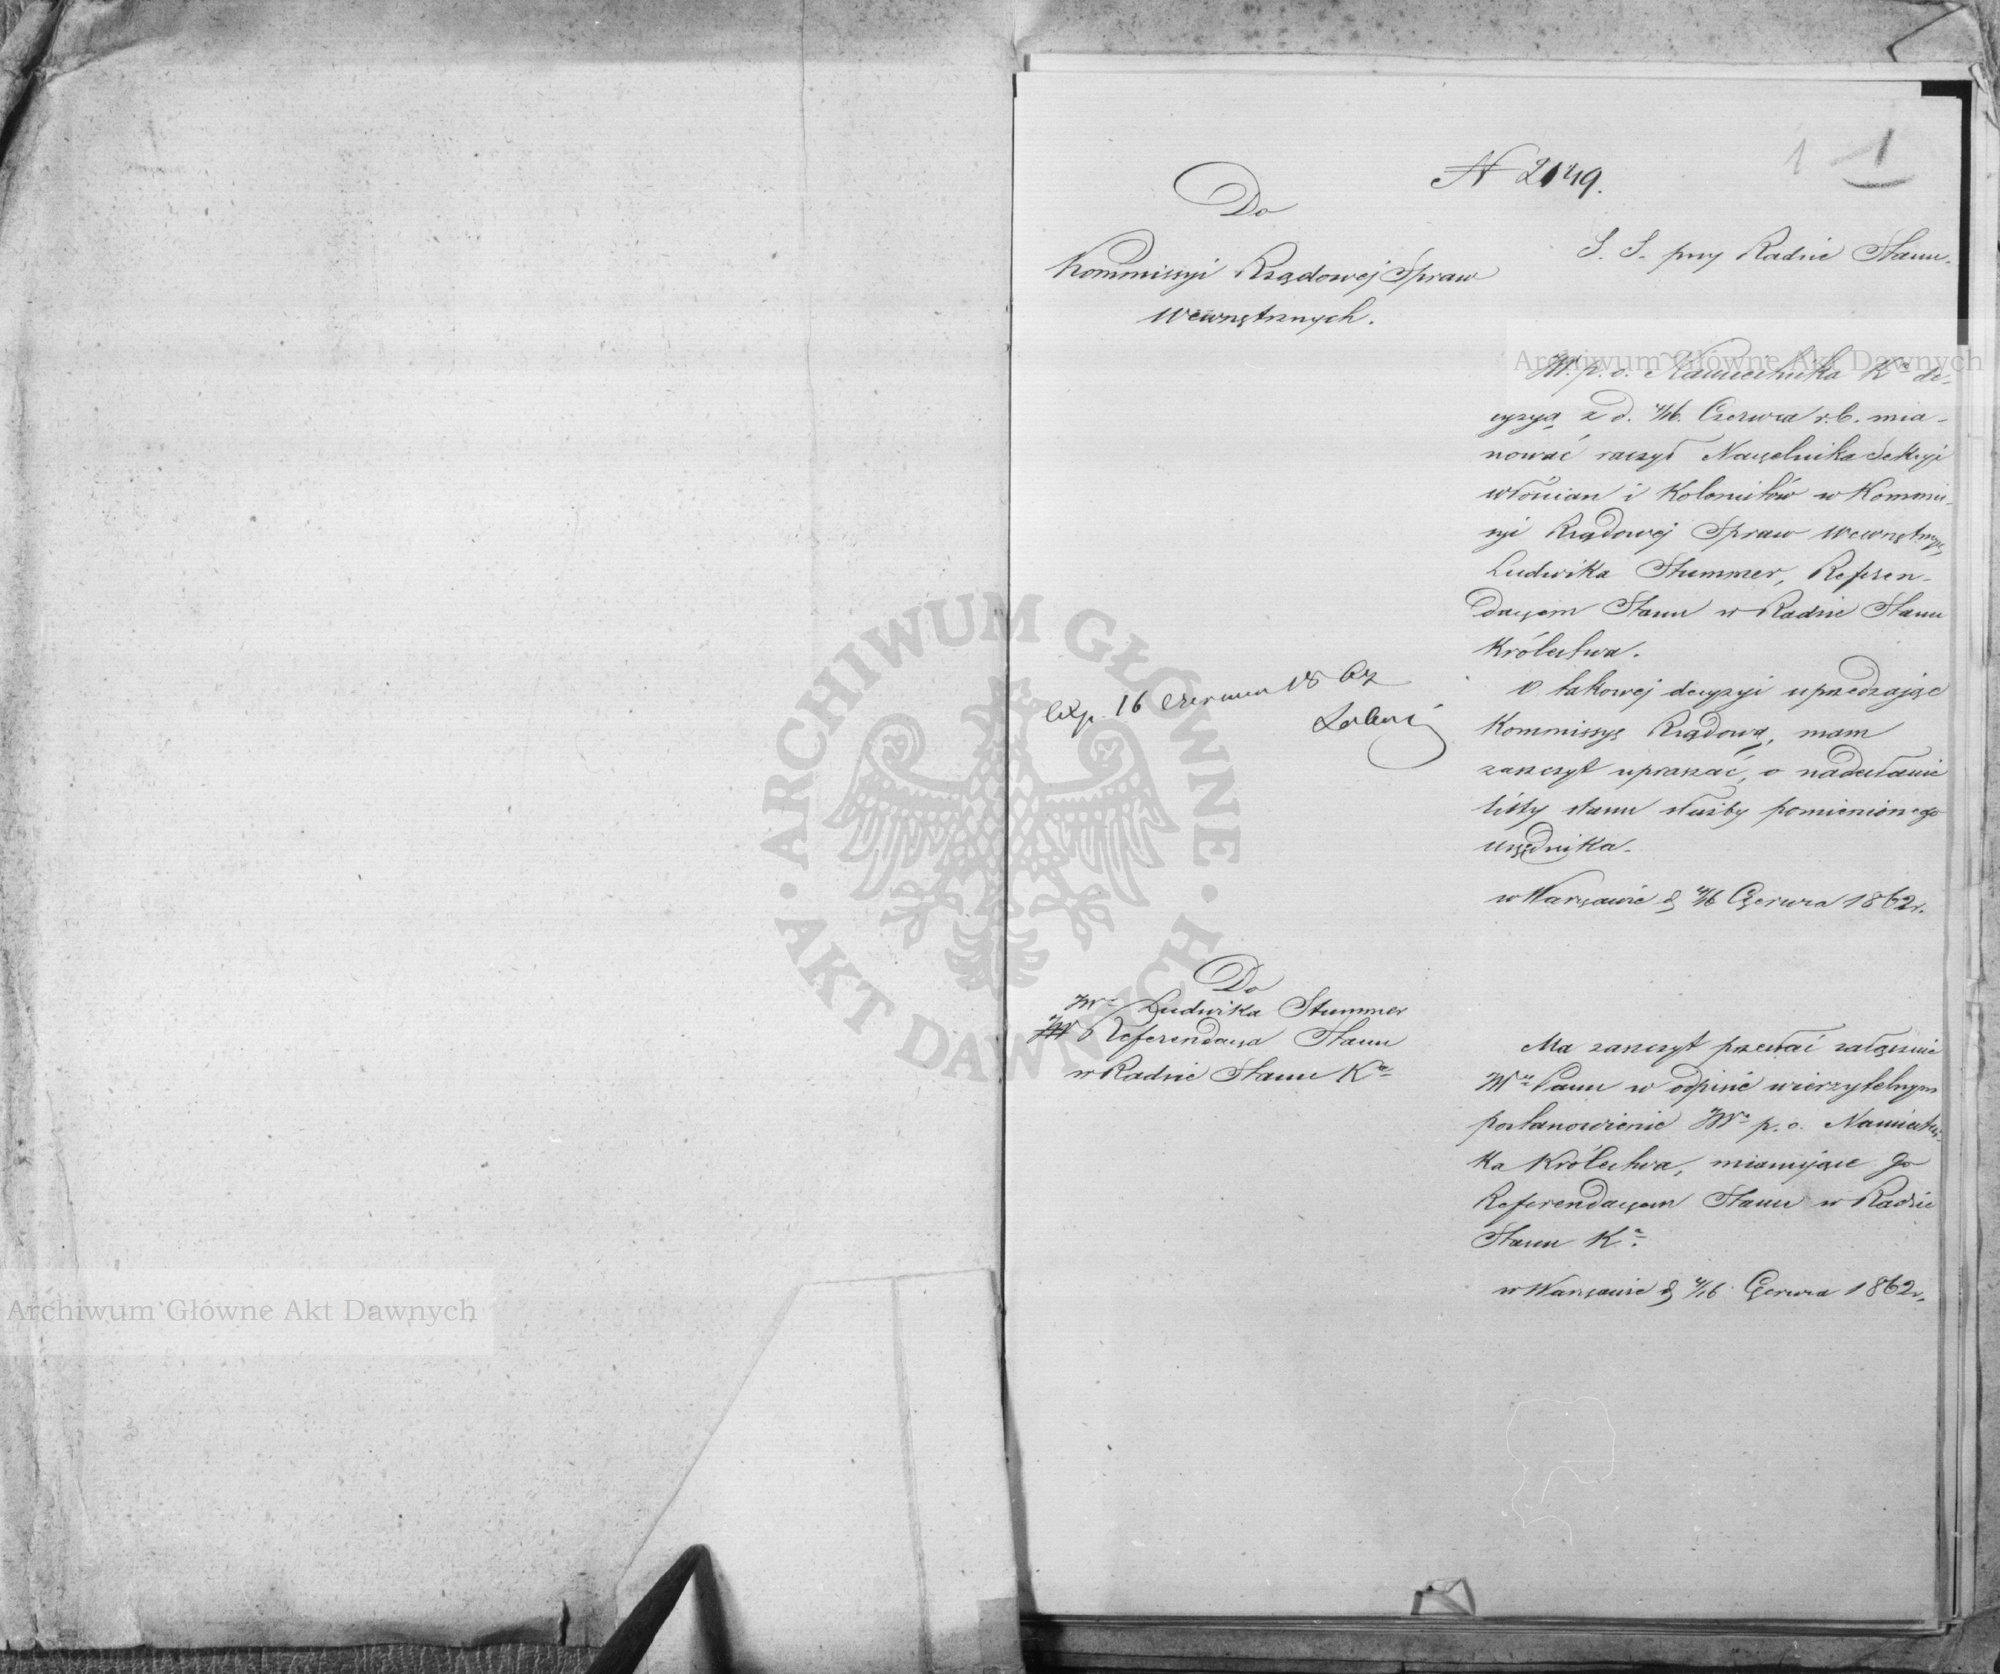 1 1
N 2149.
Do
Kommissyi Rządowej Spraw
Wewnętrznych.
S. S. przy Radzie Stanu.
JW. p. o. Namiestnika Kwa de-
cyzyą z d. 4/16. Czerwca r. b. mia-
nować raczył Naczelnika Sekcyi
włościan i Kolonistów w Kommis-
syi Rządowej Spraw Wewnętrznych
Ludwika Stummer, Referen-
darzem Stanu w Radzie Stanu
Królestwa.
O takowej decyzyi uprzedzając
Kommissyę Rządową, mam
zaszczyt upraszać, o nadesłanie
listy stanu służby pomienionego
urzędnika.
w Warszawie d 4/16 Czerwca 1862 r.
Exp. 16 Czerwca 1862
Do
JWo Ludwika Stummer
Referendarza Stanu
w Radzie Stanu Kwa
Ma zaszczyt przesłać załącznie
JWu Panu w odpisie wierzytelnym
postanowienie JWo p. o. Namiestni-
ka Królestwa, mianujące go
Referendarzem Stanu w Radzie
Stanu Kwa.
w Warszawie d 4/16 Czerwca 1862 r.
Archiwum Główne Akt Dawnych
Archiwum Główne Akt Dawnych
ARCHIWUM GŁÓWNE · AKT DAWNYCH ·